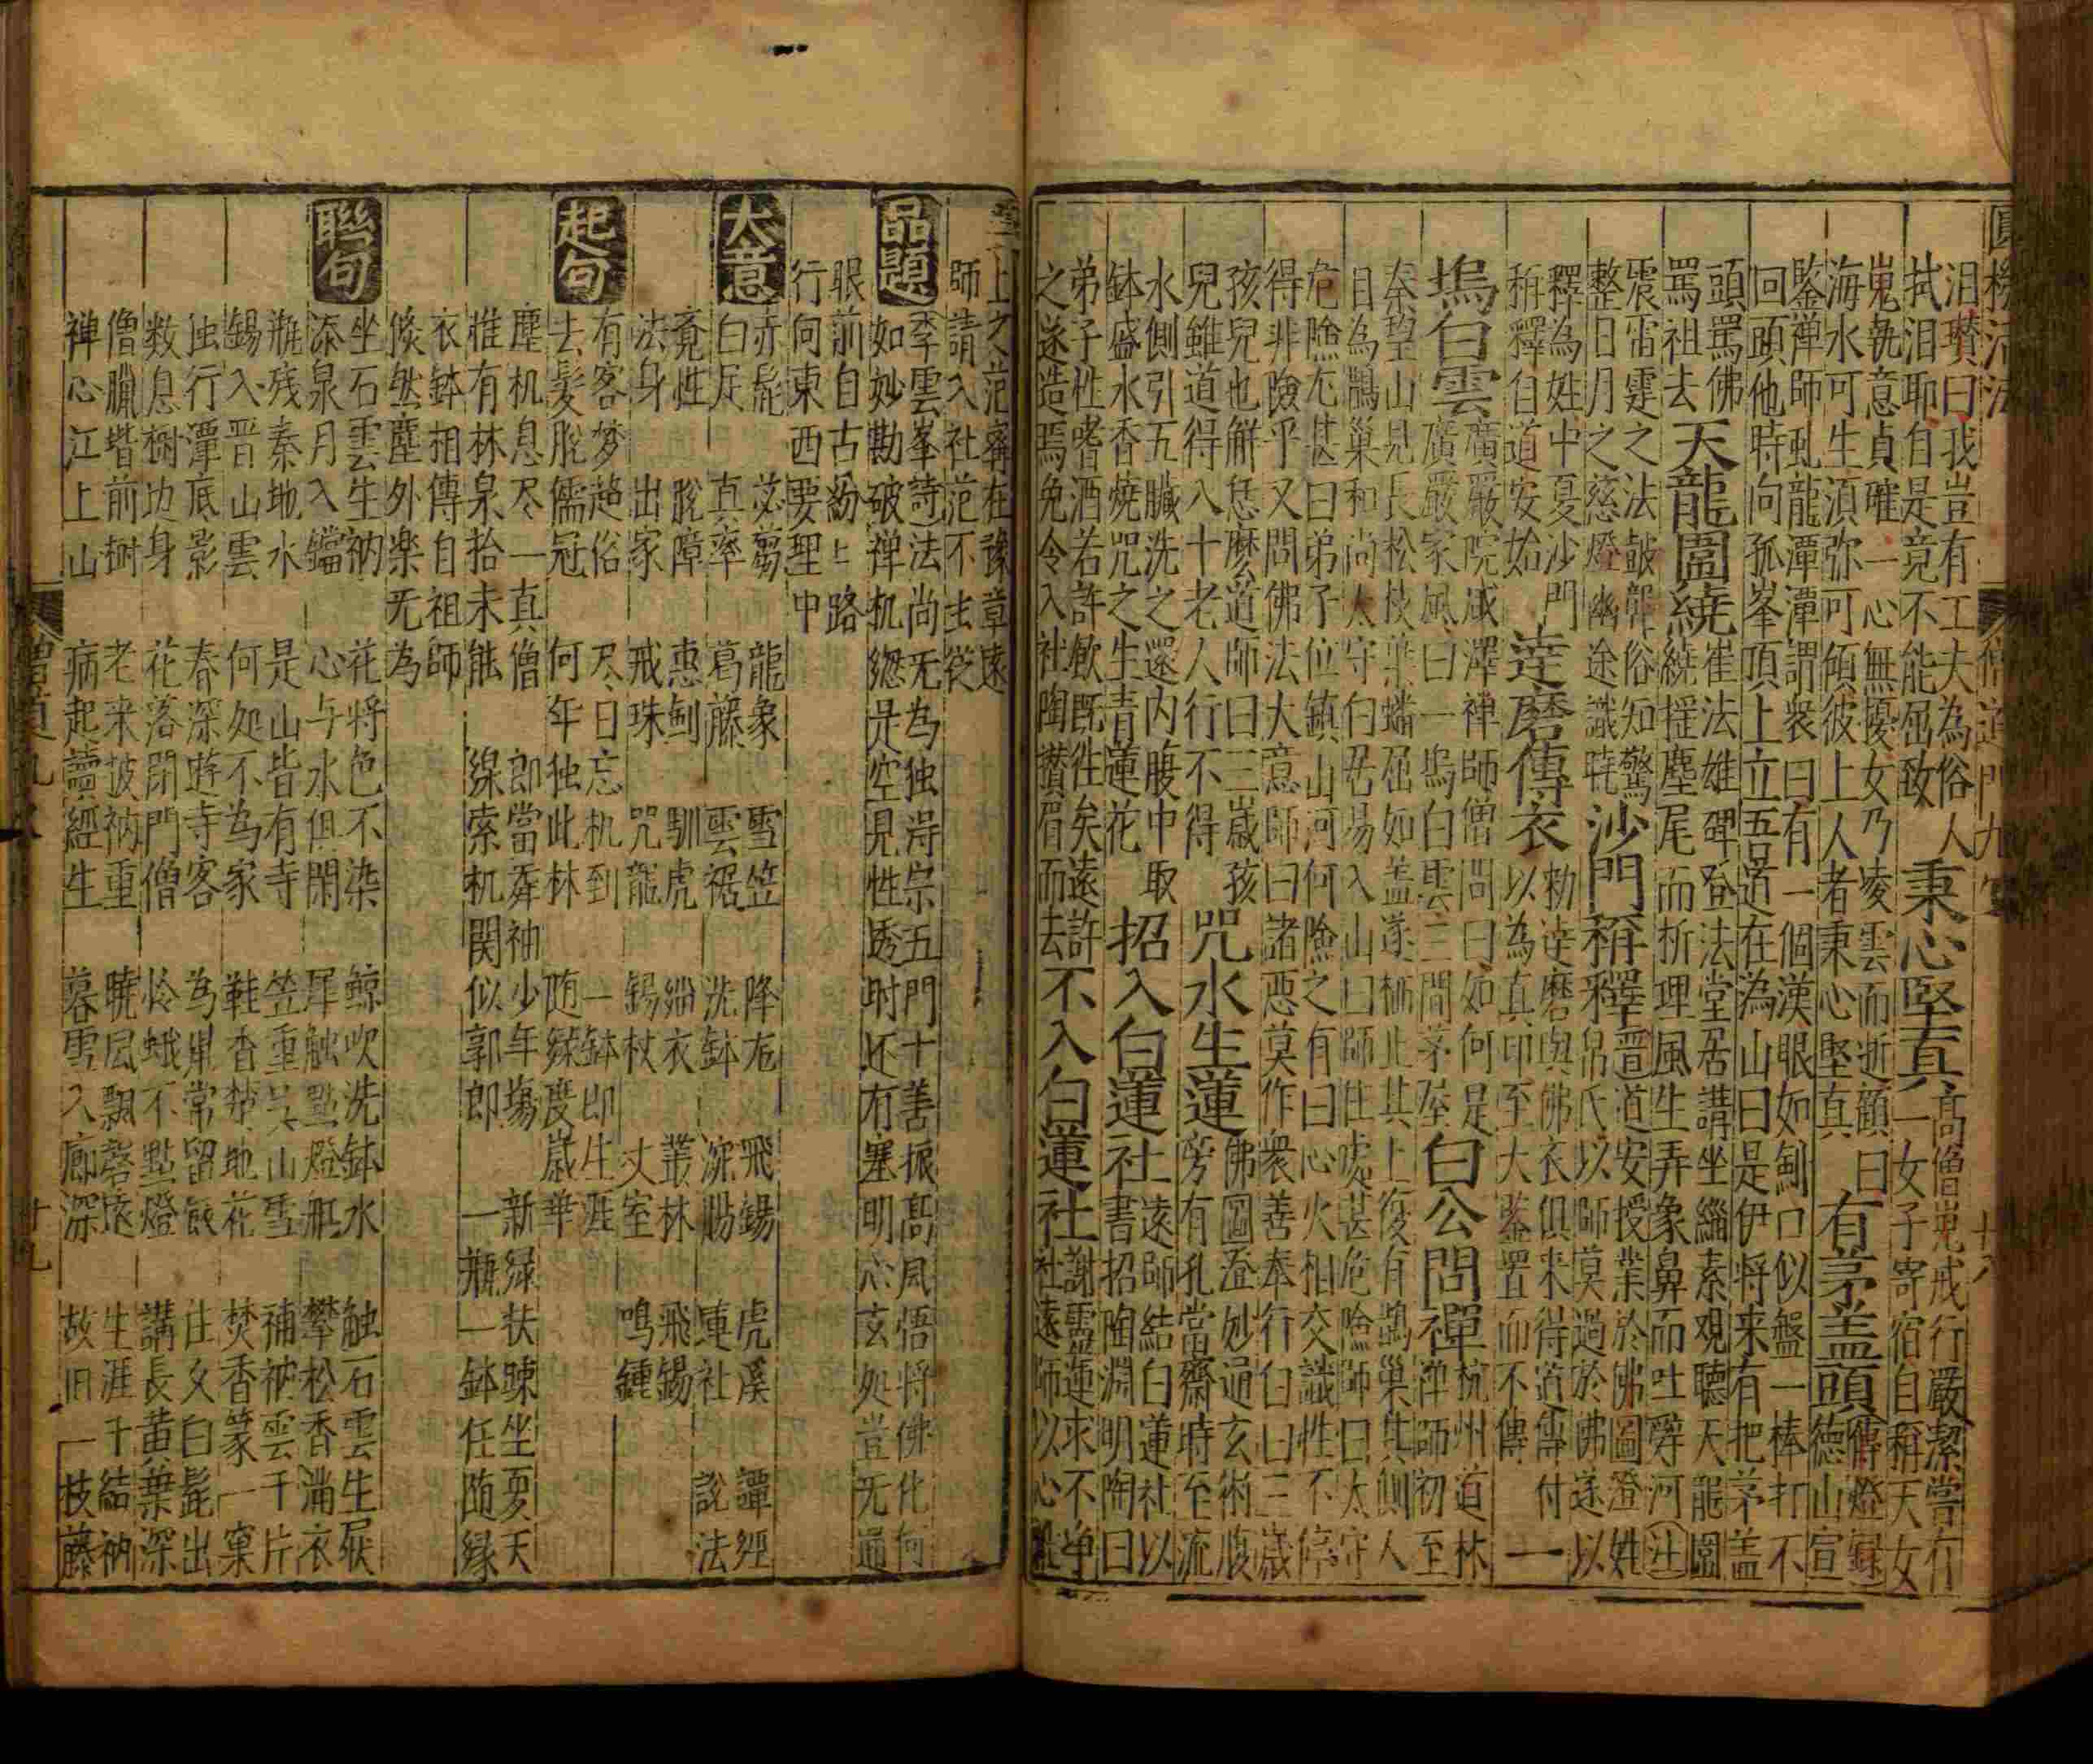 圓機活法
釋道門九卷
十八
泪瓚曰我豈有工夫為俗人
拭泪耶自是竟不能屈致
秉心堅真
高僧嵬戒行嚴潔嘗有
一女子寄宿自稱天女
嵬執意貞確一心無擾女乃凌雲而逝顧曰
海水可生湏弥可傾彼上人者秉心堅真
有茅盖頭
傳燈録
德山宣
鍳禅師到龍潭潭謂衆曰有一個漢眼如劍口似盤一棒打不
回頭他時向孤峯頂上立吾道在溈山曰是伊将来有把茅盖
頭罵佛
罵祖去
天龍圍繞
崔法雄殫登法堂居講坐緇素观聽天龍圍
繞揺塵尾而折理風生弄象鼻而吐辤河注
震雷霆之法皷聾俗知驚
整日月之慈燈幽途識暁
沙門稱釋
晋道安授業於佛圖澄姓
帛氏以師莫過於佛遂以
釋為姓中夏沙門
稱釋自道安始
達磨傳衣
勑達磨與佛衣俱来得道傳付
以為真印至大鑒置而不傳
一
塢白雲
廣嚴院咸澤禅師僧問曰如何是
廣嚴家風曰一塢白雲三間茅屋
白公問禪
杭州道林
禅師初至
秦望山見長松枝葉蟠屈如盖遂栖止其上復有鵲巢其側人
目為鵲巢和尚太守白居易入山曰師住處甚危險師曰太守
危險尤甚曰弟子位鎮山河何險之有曰心火相交識性不停
得非險乎又問佛法大意師曰諸惡莫作衆善奉行白曰三歳
孩兒也觧恁麽道師曰三歳孩
兒雖道得八十老人行不得
咒水生蓮
佛圖澄妙通玄術腹
旁有孔當齋時至流
水側引五臟洗之還内腹中取
鉢盛水香燒咒之生青蓮花
招入白蓮社
遠師結白蓮社以
書招陶淵明陶曰
弟子性嗜酒若許飲既徃矣遠許
之遂造焉免令入社陶攢眉而去
不入白蓮社
謝灵運求不净
社遠師以心雜
上之范寗在豫章遠
師請入社范不去從
品題
季雲峯詩法尚无為独淂宗五門十善振高風悟将佛化何
如妙勘破禅机緫是空見性透时还有塞明心玄処豈无通
眼前自古紛〻路
行何東西要理中
大意
赤髭 苾蒭 龍象 雪笠 降龙 飛錫 虎溪 譚經
白足 真率 葛藤 雲裾 洗鉢 浣腸 連社 說法
竟性 脫障 惠劍 馴虎 緇衣 叢林 飛錫
法身 出家 戒珠 咒龍 錫杖 丈室 鳴鍾
起句
有客梦超俗 尽日忘机到 一鉢即生涯
去髪脫儒冠 何年独此林 随緣度歳華
塵机息尽一真僧 即當舞袖少年塲 新緑扶踈坐夏天
惟有林泉拾未能 線索机関似郭郎 一瓶一鉢任随緣
衣鉢相傳自祖師
倐然塵外楽无為
聯句
坐石雲生衲 花将色不染 鯨吹洗鉢水 触石雲生屐
添泉月入鐺 心与水俱閑 犀触點燈船 攀松香滿衣
瓶残秦地水 是山皆有寺 笠重吴山雪 補衲雲千片
錫入晋山雲 何処不為家 鞋香楚地花 焚香篆一窠
独行潭底影 春深遊寺客 為鼠常留飯 住久白髭出
数息樹边身 花落閉門僧 怜蛾不點燈 講長黄葉深
僧臘堦前樹 老来披衲重 暁風飘磬遠 生涯千結衲
禅心江上山 病起讀經生 暮雪入廊深 故旧一枝藤
十九